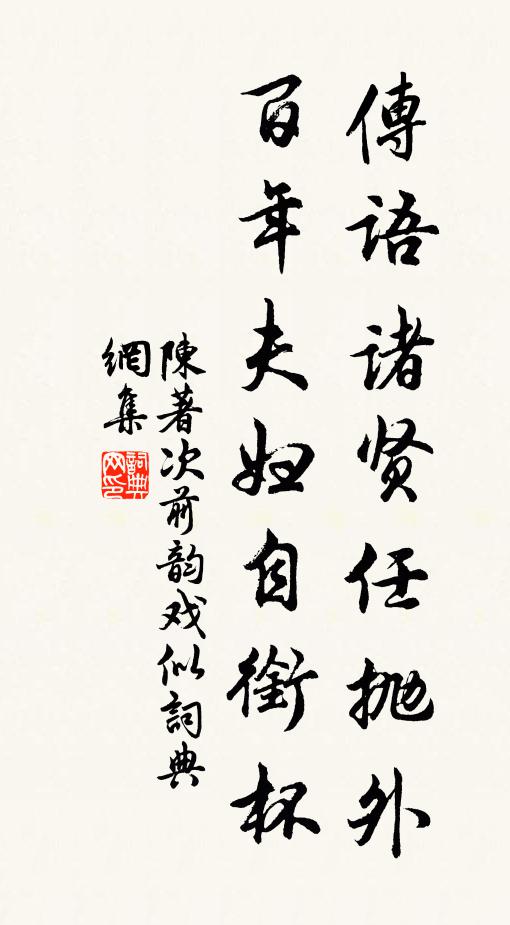 傳語諸贤任抛外
百年夫妇自銜杯
陳著次前韵戏似詞典
網集
詞典网印